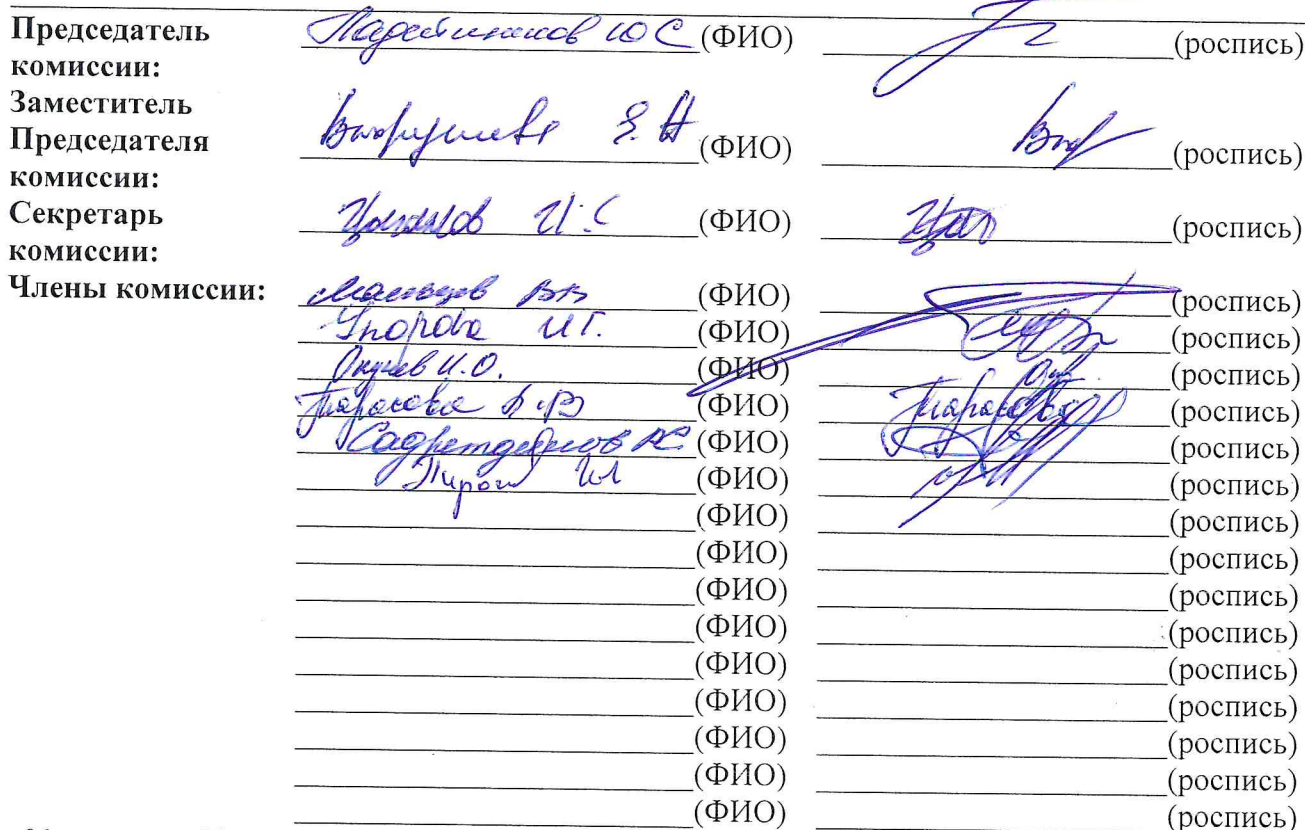 Председатель комиссии: Ю С (ФИО) (роспись)
Заместитель Председателя комиссии: Е. Н (ФИО) (роспись)
Секретарь комиссии: И. С (ФИО) (роспись)
Члены комиссии: Мальцев ВВ (ФИО) (роспись)
Упорова И.Г. (ФИО) (роспись)
И.О. (ФИО) (роспись)
Тарасова В.В (ФИО) Тарасова (роспись)
Садретдинов РС (ФИО) (роспись)
(ФИО) (роспись)
(ФИО) (роспись)
(ФИО) (роспись)
(ФИО) (роспись)
(ФИО) (роспись)
(ФИО) (роспись)
(ФИО) (роспись)
(ФИО) (роспись)
(ФИО) (роспись)
(ФИО) (роспись)